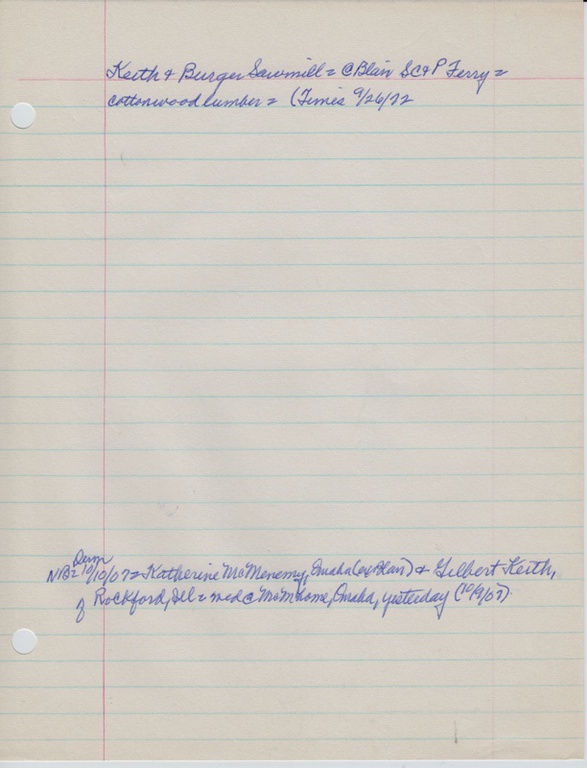 Keith & Burger Sawmill = @ Blair SC&P Ferry =
cottonwood lumber = (Times 9/26/72
Dem
NB= 10/10/07 = Katherine McMenemy, Omaha (ex Blair) & Gilbert Keith,
of Rockford, Ill = md @ McM home, Omaha, yesterday (10/9/07).